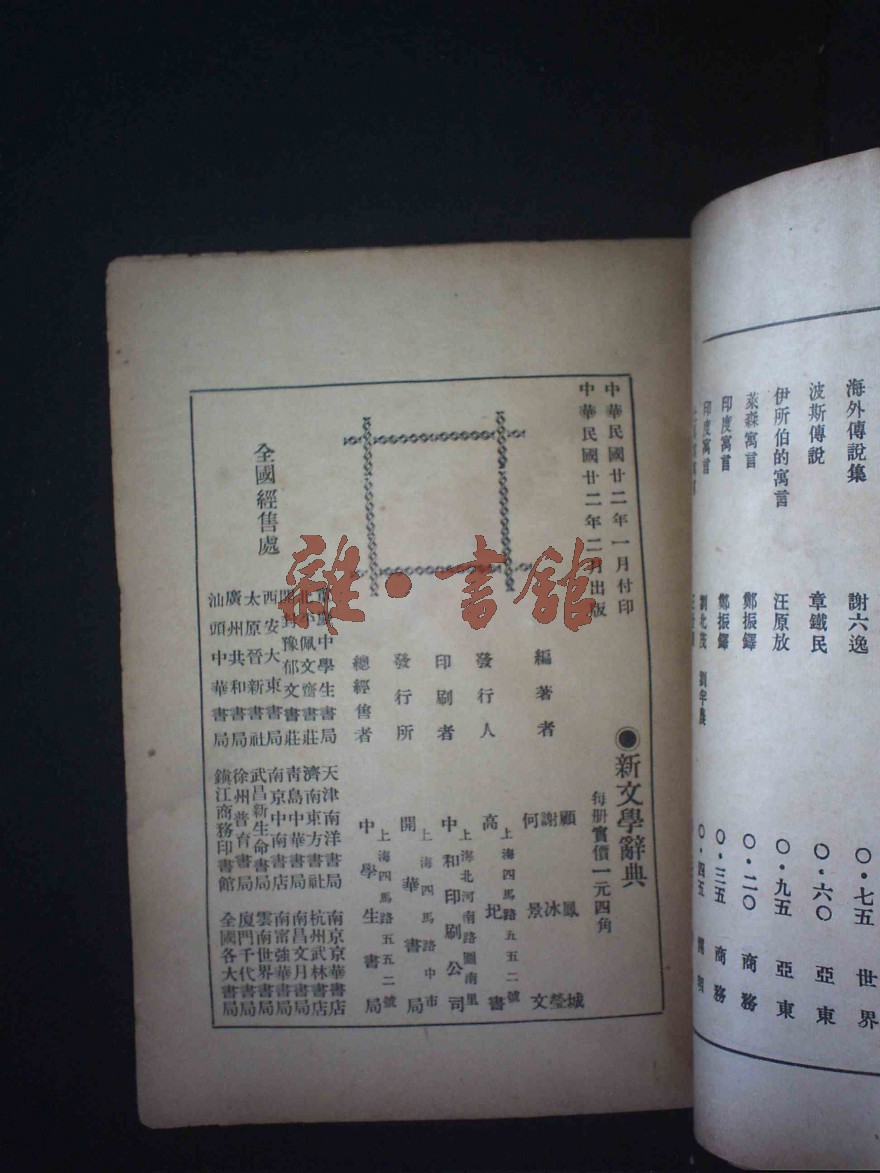 海外傳說集 謝六逸 〇·七五 世界
波斯傳說 章鐵民 〇·六〇 亞東
伊所伯的寓言 汪原放 〇·九五 亞東
萊森寓言 鄭振鐸 〇·二〇 商務
印度寓言 鄭振鐸 〇·三五 商務
印度寓言 劉北茂 〇·四五
中華民國廿二年一月付印
中華民國廿二年二月出版
●新文學辭典
每册實價一元四角
編著者
顧鳳城
謝冰瑩
何景文
發行人 高圯書
上海四馬路五五二號
印刷者 中和印刷公司
上海北河南路圖南里
發行所 開華書局
上海四馬路中市
總經售者 中學生書局
上海四馬路五五二號
全國經售處
中學生書局
北平佩文齋書莊
開封豫郁文書莊
西安大東書局
太原晉新書社
廣州共和書局
汕頭中華書局
天津南洋書局
濟南東方書社
青島中華書局
南京中南書店
武昌新生命書局
徐州普育書局
鎮江商務印書館
南京京華書店
杭州武林書店
南昌文月書局
南富強華書局
雲南世界書局
廈門千代書局
全國各大書局
雜·書館